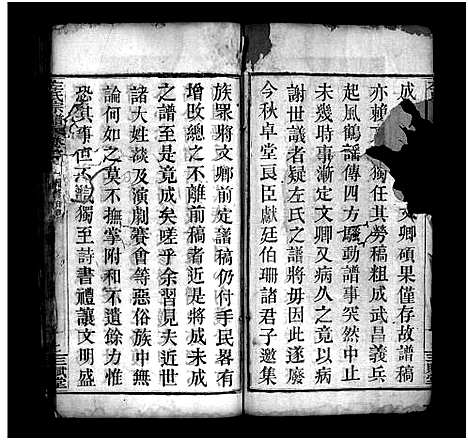 成文卿碩果僅存故譜稿
亦賴獨任其勞稿粗成武昌義兵
起風鶴謠傳四方騷動譜事突然中止
未幾時事漸定文卿又病久之竟以病
謝世議者疑左氏之譜將毋因此遂廢
今秋卓堂辰臣獻廷伯珊諸君子邀集
族眾將文卿前定譜稿仍付手民畧有
增改總之不離前稿者近是將成未成
之譜至是竟成矣嗟乎余習見夫近世
諸大姓淡及演劇賽會等惡俗族中無
論何如之莫不撫掌附和不遺餘力惟
恐其事但不獨至詩書禮讓文明盛
左氏宗譜
三賦堂
三賦堂